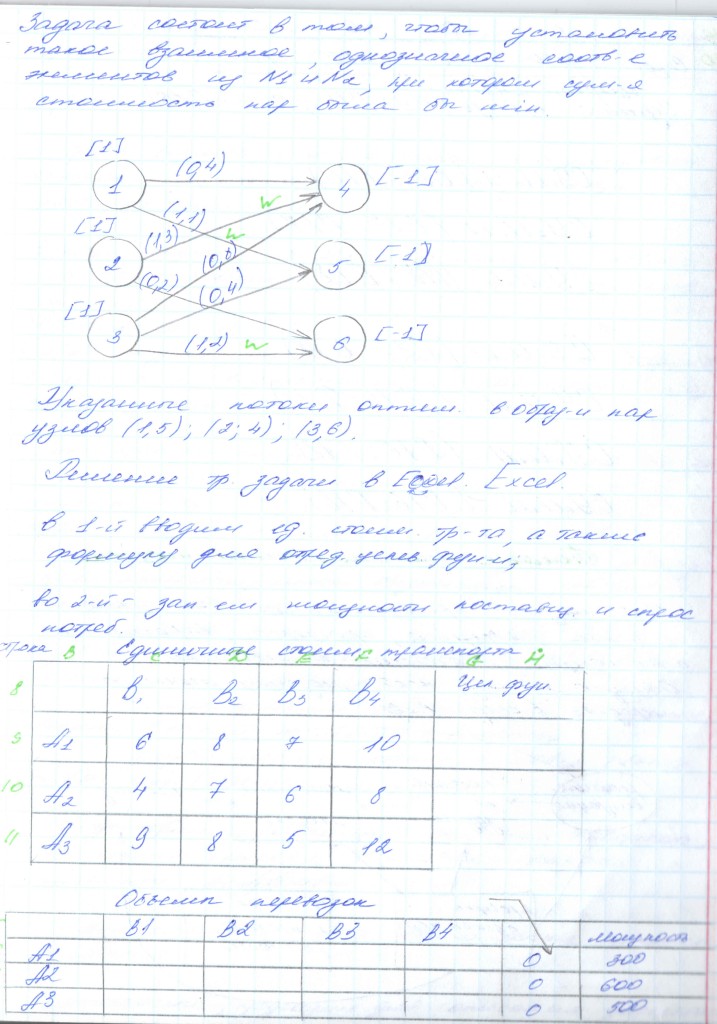 Задача состоит в том, чтобы установить
такое взаимное, однозначное соотв-е
элементов из N1 и N2, при котором сум-я
стоимость пар была бы min.
[1] 1 (0,4) 4 [-1]
(1,1)
[1] 2 (1,3) 5 [-1]
(0,2) (0,6)
(0,4)
[1] 3 (1,2) 6 [-1]
Указанные потоки оптим. в обр-и пар
узлов (1,5); (2; 4); (3,6).
Решение тр. задачи в Excel. Excel.
в 1-й вводим ед. стоим. тр-та, а также
формулу для опред. целев. функ-и;
во 2-й - зап-ем мощности поставщ. и спрос
потреб.
Единичные стоим. транспорта
B C D E F G H
8 B1 B2 B3 B4 Цел. фун.
9 A1 6 8 7 10
10 A2 4 7 6 8
11 A3 9 8 5 12
Объемы перевозок
B1 B2 B3 B4 мощность
A1 0 300
A2 0 600
A3 0 500